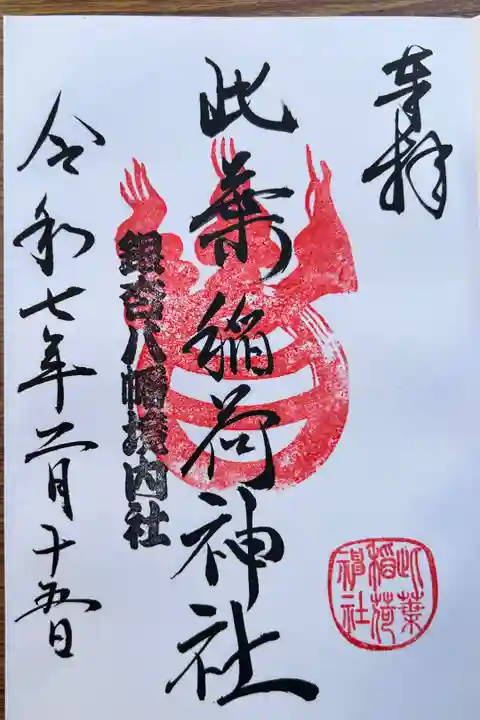 奉拝
此葉稲荷神社
銀杏八幡境内社
令和七年二月十五日
此葉
稲荷
神社